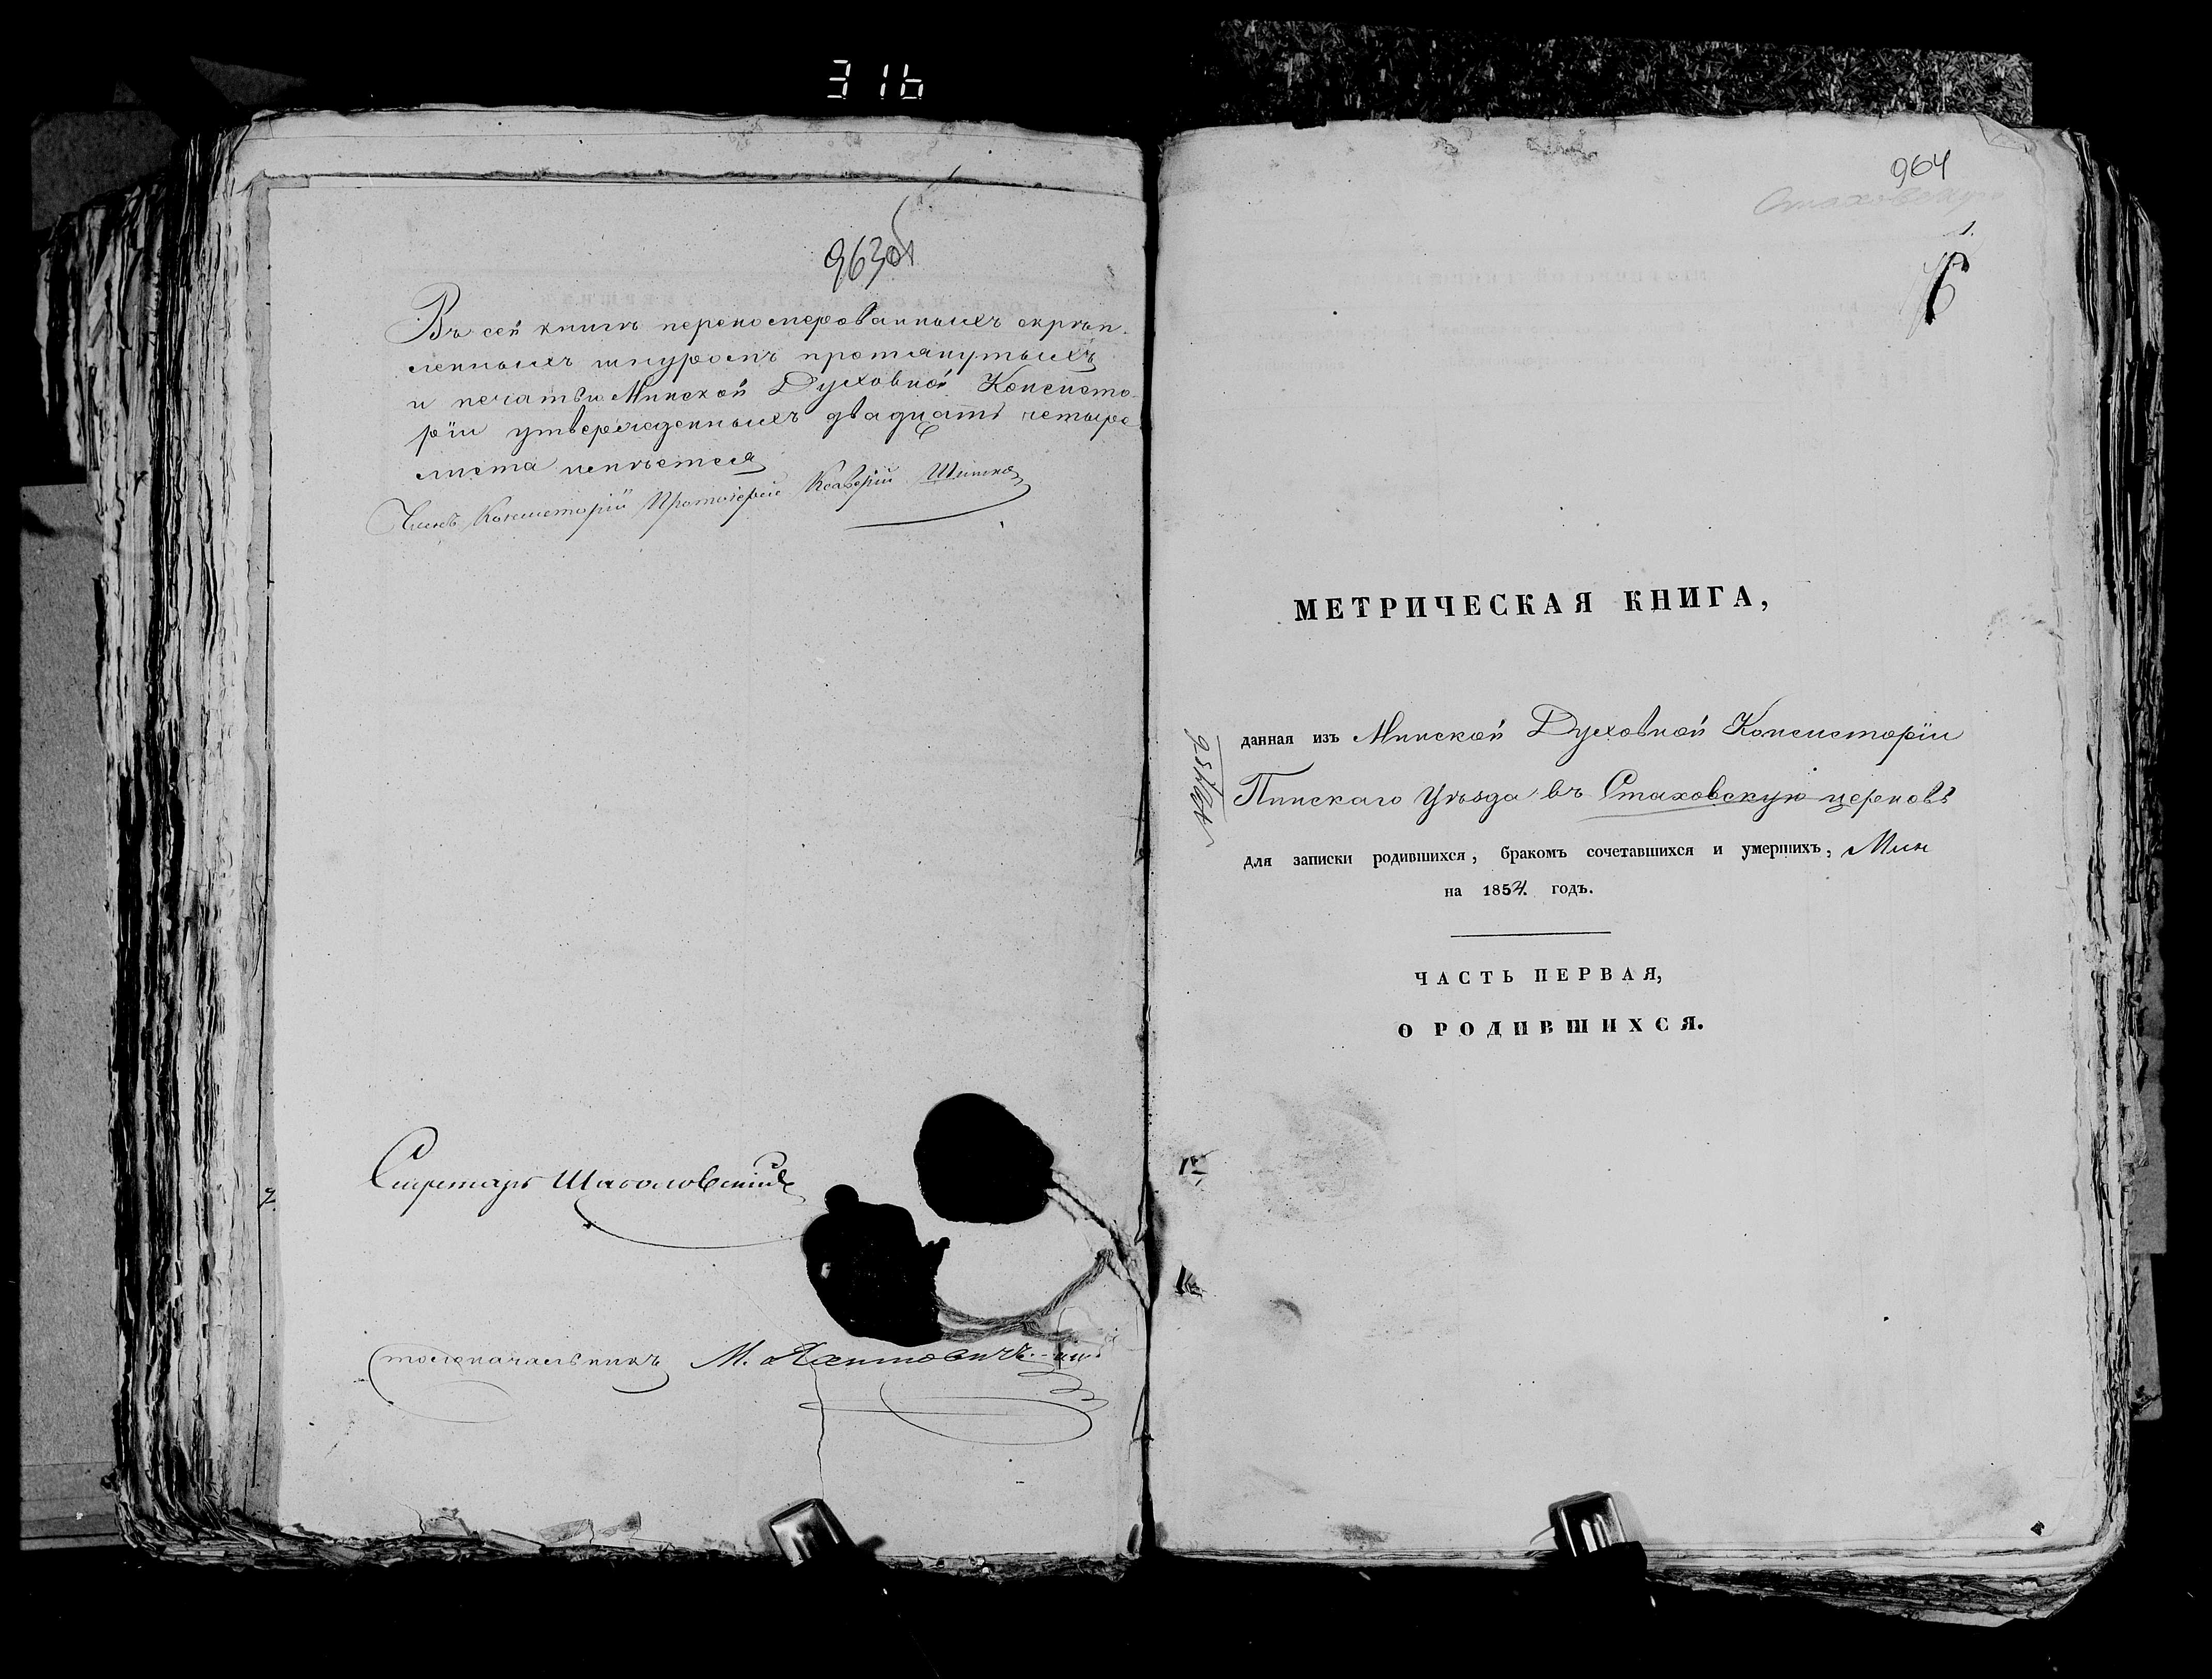 316
963об
Въ сей книгѣ переномерованныхъ скрѣп-
ленныхъ шнуромъ протянутыхъ
и печатью Минской Духовной Консисто-
ріи утвержденныхъ двадцать четыре
листа имѣется
Членъ Консисторіи Протоіерей Ксаверій
Секретарь
Столоначальникъ М.
964
Стаховскую
1.
МЕТРИЧЕСКАЯ КНИГА,
данная изъ Минской Духовной Консисторіи
Пинскаго Уѣзда въ Стаховскую церковь
для записки родившихся, бракомъ сочетавшихся и умершихъ,
на 1854. годъ.
ЧАСТЬ ПЕРВАЯ,
О РОДИВШИХСЯ.